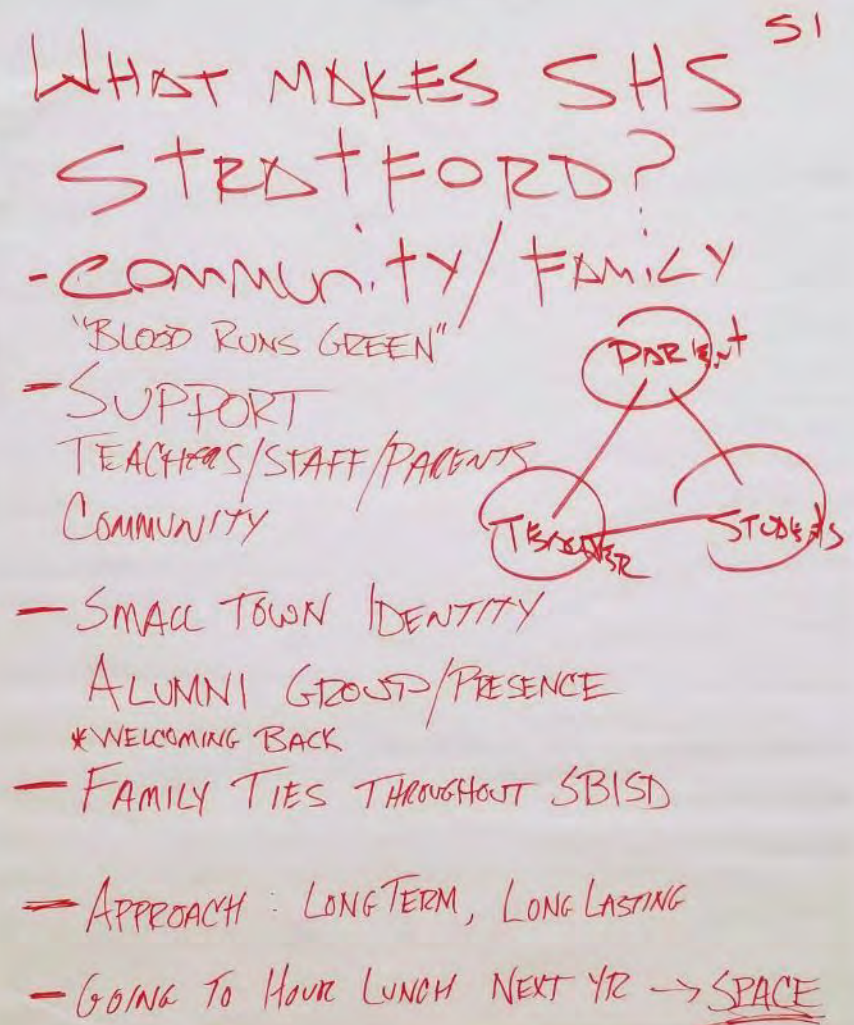 S1
WHAT MAKES SHS
STRATFORD?
- COMMUNITY / FAMILY
"BLOOD RUNS GREEN"
PARENT
- SUPPORT
TEACHERS/STAFF/PARENTS
COMMUNITY
TEACHER STUDENTS
- SMALL TOWN IDENTITY
ALUMNI GROUP/PRESENCE
* WELCOMING BACK
- FAMILY TIES THROUGHOUT SBISD
- APPROACH : LONG TERM, LONG LASTING
- GOING TO HOUR LUNCH NEXT YR → SPACE